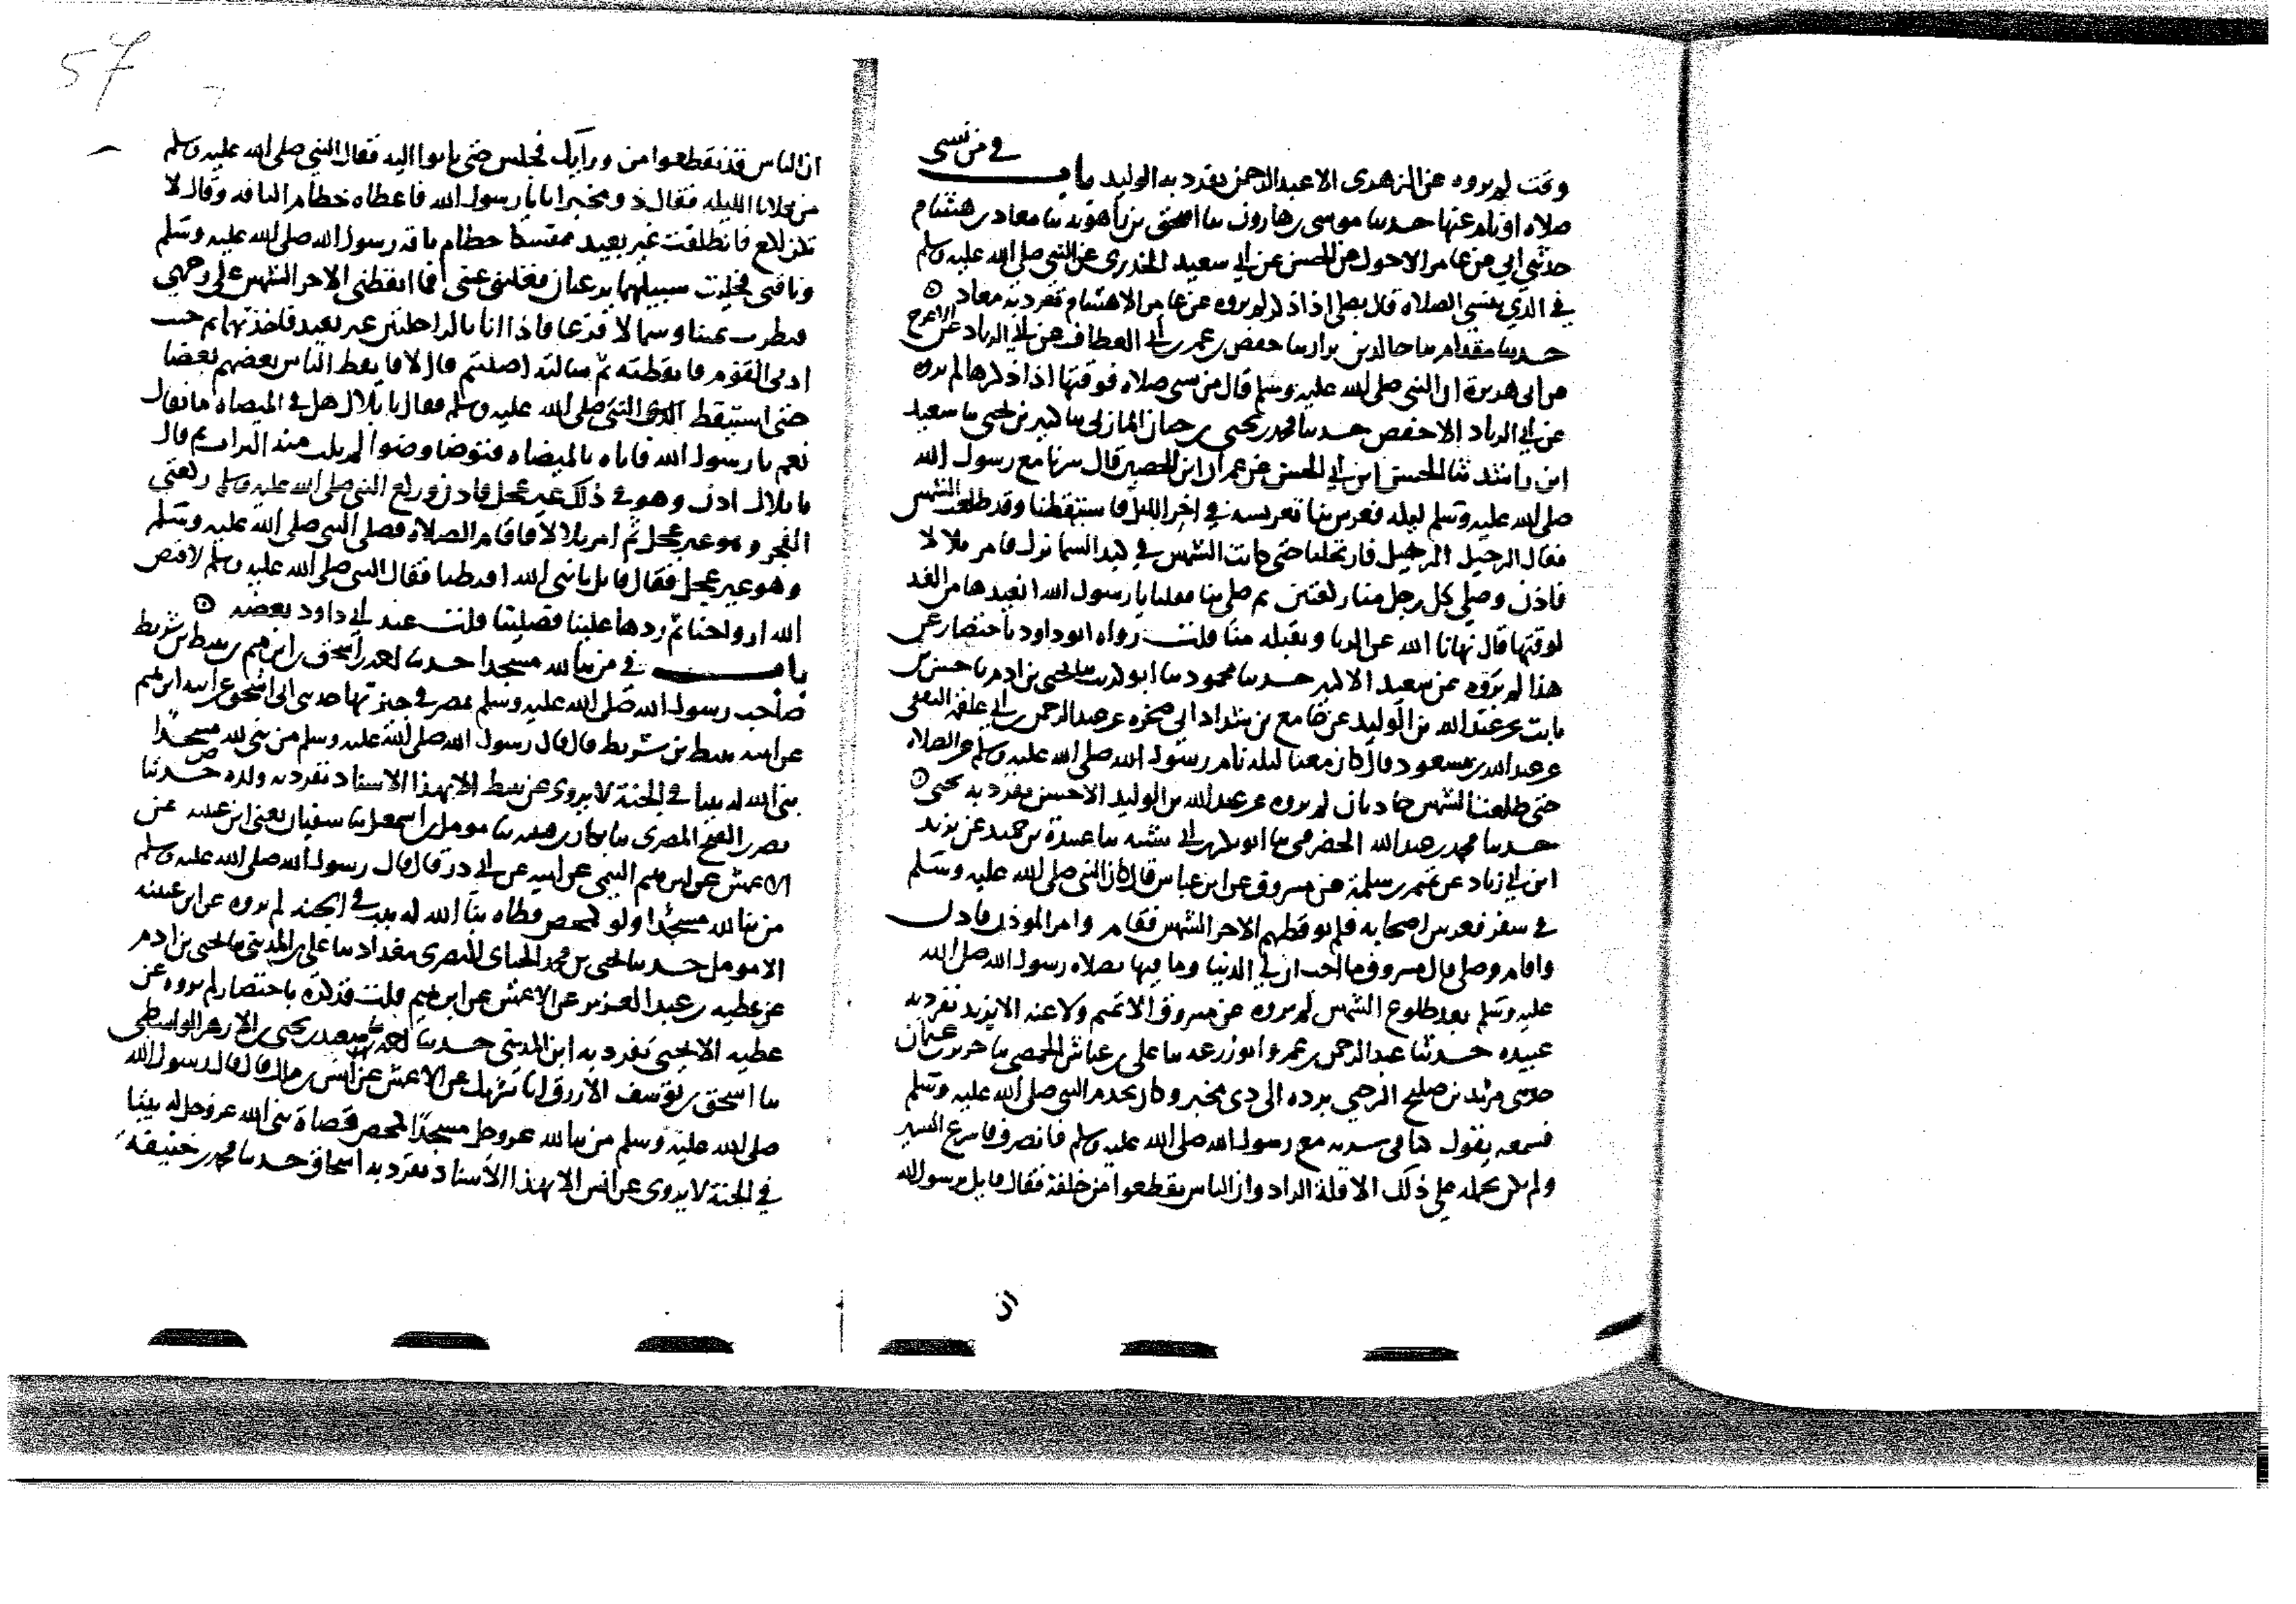 وقت لم يروه عن الزهري الا عبد الرحمن تفرد به الوليد باب في من نسى
صلاه او نام عنها حدثنا موسى بن هارون ثنا اسحق بن راهويه ثنا معاذ بن هشام
حدثني ابي عن عامر الاحول عن الحسن عن ابي سعيد الخدري عن النبي صلى الله عليه وسلم
في الذي ينسى الصلاه قال يصلي اذا ذكر لم يروه عن عامر الا هشام تفرد به معاذ
حدثنا مقدام ثنا خالد بن نزار ثنا حفص بن عمر بن ابي العطاف عن ابي الزناد عن الاعرج
عن ابي هريرة ان النبي صلى الله عليه وسلم قال من نسى صلاه فوقتها اذا ذكرها لم يروه
عن ابي الزناد الا حفص حدثنا محمد بن يحيى بن المازني ثنا كثير بن يحيى ثنا سعيد
ابن راشد ثنا الحسن ابن ابي الحسن عن عمران ابن الحصين قال سرنا مع رسول الله
صلى الله عليه وسلم ليله فعرس بنا تعريسه في اخر الليل فاستيقظنا وقد طلعت الشمس
فقال الرحيل الرحيل فارتحلنا حتى كانت الشمس في كبد السما نزل فامر بلالا
فاذن وصلى كل رجل منا ركعتين ثم صلى بنا فقلنا يا رسول الله انعيدها من الغد
لوقتها قال نهانا الله عن الربا ويقبله منا قلت رواه ابو داود باختصار عن
هذا لم يروه عن سعيد الا كثير حدثنا محمود ثنا ابو كريب ثنا يحيى بن ادم ثنا حسن بن
ثابت عن عبد الله بن الوليد عن جامع بن شداد ابي صخره عن عبد الرحمن بن ابي علقمه الثقفي
عن عبد الله بن مسعود قال كان معنا ليله نام رسول الله صلى الله عليه وسلم عن الصلاه
حتى طلعت الشمس حاديان لم يروه عن عبد الله بن الوليد الا حسن تفرد به يحيى
حدثنا محمد بن عبد الله الحضرمي ثنا ابو بكر بن ابي شيبه ثنا عبيدة بن حميد عن يزيد
ابن ابي زياد عن تميم بن سلمة عن مسروق عن ابن عباس قال كان النبي صلى الله عليه وسلم
في سفر فعرس اصحابه فلم يوقظهم الا حر الشمس فقام وامر المؤذن فاذن
واقام وصلى قال مسروق ما احب ان لي الدنيا وما فيها بصلاه رسول الله صلى الله
عليه وسلم بعد طلوع الشمس لم يروه عن مسروق الا تميم ولا عنه الا يزيد تفرد به
عبيده حدثنا عبد الرحمن بن عمرو ابو زرعه ثنا علي بن عياش الحمصي ثنا حريز بن عثمان
حدثني يزيد بن صليح الرحبي يرده الى ذي مخبر وكان يخدم النبي صلى الله عليه وسلم
فسمعه يقول كنا في سريه مع رسول الله صلى الله عليه وسلم فانصرف فاسرع السير
ولم يكن يحمله على ذلك الا قلة الزاد وان الناس يقطعوا من خلفه فقال قايل يرسول الله
ان
57
ان الناس قد تقطعوا من ورايك فجلس حتى ثابوا اليه فقال النبي صلى الله عليه وسلم
من يكلانا الليله فقال ذو مخبر انا يا رسول الله فاعطاه خطام الناقه وقال لا
تكن لكع فانطلقت غير بعيد ممسكا خطام ناقه رسول الله صلى الله عليه وسلم
وناقتي فخليت سبيلهما يرعيان فغلبني عيني فما ايقظني الا حر الشمس على وجهي
فنظرت يمينا وشمالا فزعا فاذا انا بالراحلتين غير بعيد فاخذتهما ثم جيت
ادنى القوم فايقظته ثم سالته اصليتم قال لا فايقظ الناس بعضهم بعضا
حتى استيقظ النبي صلى الله عليه وسلم فقال يا بلال هل في الميضاه ما فقال
نعم يا رسول الله فاتاه بالميضاه فتوضا وضوا لم يلت منه التراب ثم قال
يا بلال اذن وهو في ذلك غير عجل فاذن وركع النبي صلى الله عليه وسلم ركعتي
الفجر وهو غير عجل ثم امر بلالا فاقام الصلاة فصلى النبي صلى الله عليه وسلم
وهو غير عجل فقال قايل يا نبي الله افرطنا فقال النبي صلى الله عليه وسلم لا قبض
الله ارواحنا ثم ردها علينا فصلينا قلت عند ابي داود بعضه
باب في من بنا لله مسجدا حدثنا احمد بن اسحق بن ابرهيم بن نبيط بن شريط
صاحب رسول الله صلى الله عليه وسلم بمصر في جيزتها حدثني ابي اسحق عن ابيه ابرهيم
عن ابيه نبيط بن شريط قال قال رسول الله صلى الله عليه وسلم من بنى لله مسجدا
بنى الله له بيتا في الجنة لا يروى عن نبيط الا بهذا الاسناد تفرد به ولده حدثنا
نصر بن الفتح المصري ثنا بكار بن قتيبه ثنا مومل بن اسمعيل ثنا سفيان يعني ابن عيينه عن
الاعمش عن ابرهيم التيمي عن ابيه عن ابي ذر قال قال رسول الله صلى الله عليه وسلم
من بنا لله مسجدا ولو كمفحص قطاه بنا الله له بيت في الجنه لم يروه عن ابن عيينه
الا مومل حدثنا يحيى بن محمد الحناى البصري ببغداد ثنا علي بن المديني ثنا يحيى بن ادم
عن قطبه بن عبد العزيز عن الاعمش عن ابرهيم قلت فذكره باختصار لم يروه عن
قطبه الا يحيى تفرد به ابن المديني حدثنا احمد بن يحيى بن الازهر الواسطي
ثنا اسحق بن يوسف الازرق انا شريك عن الاعمش عن انس بن مالك قال قال رسول الله
صلى الله عليه وسلم من بنا لله عز وجل مسجدا كمفحص قطاة بنى الله عز وجل له بيتا
في الجنة لا يروى عن انس الا بهذا الاسناد تفرد به اسحاق حدثنا محمد بن حنيفه